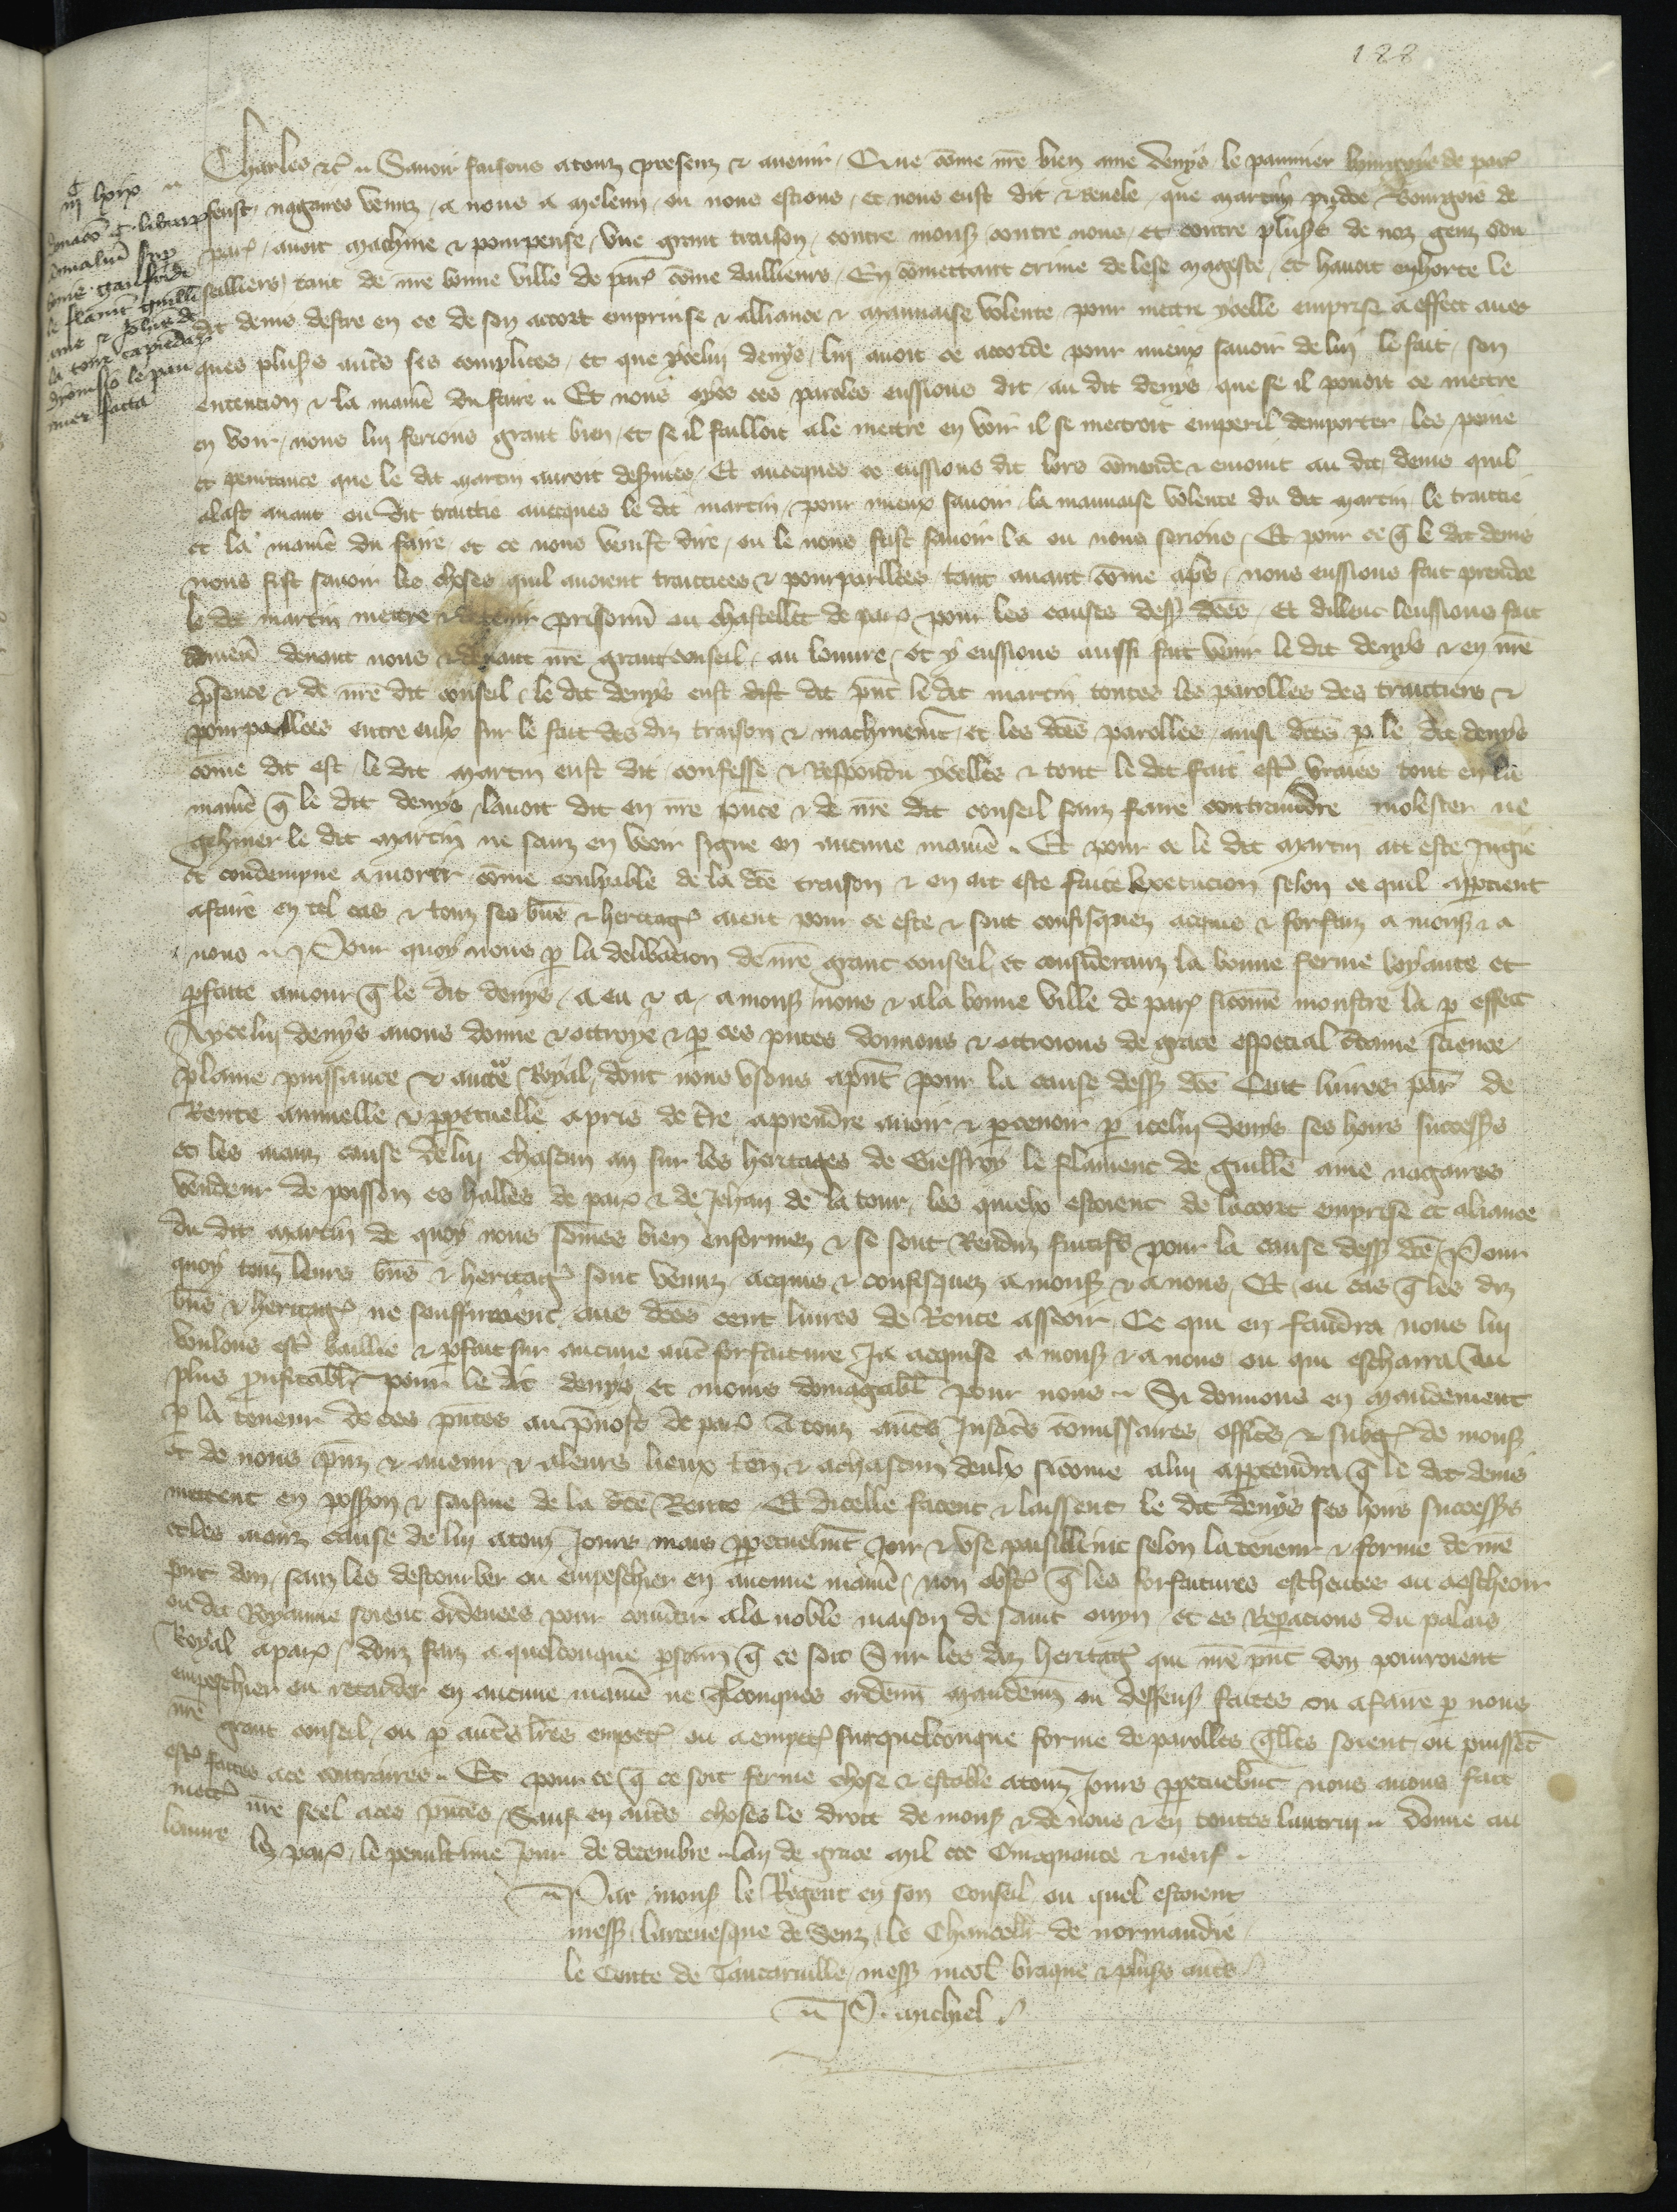 188
Charles etc̃ Savoir faisons a touz presenz & avenir, Que cõme nr̃e bien ame denys le paumier bourgois de par̃
feust nagaires venuz, a nous a meleun, ou nous estions, et nous eust dit & revele, que martin pisdoe Bourgois de
par̃, avoit machine & pourpense, une grant traison, contre mons̃ contre nous, et contre plus̃s de noz genz con
seilliers, tant de nr̃e bonne ville de par̃ cõme dailleurs, En cõmettant crime de lese mageste, et havoit enhorte le
dit denis destre en ce de son accort emprinse & alliance & mauvaise volente pour mettre ycelle emprise a effect avec
ques plus̃s autr̃s ses complices, et que ycelui denys, lui avoit ce accorde pour mieux savoir de lui le fait, son
entencion & la manier̃ du faire. Et nous oyes ces paroles eussions dit, au dit denys que se il povoit ce mettre
en voir, nous lui ferions grant bien, et se il failloit a le mettre en voir il se mettroit em peril demporter, les peine
et penitance que le dit martin auroit deservies, Et avecques ce eussions dit lors cõmende & enjoint au dit, denis quil
alast avant ou dit traittie avecques le dit martin, pour mieux savoir, la mauvaise volente du dit martin, le traittie
et la manier̃ du faire, et ce nous venist dire, ou le nous feist savoir la ou nous serions, Et pour ce q̃ le dit denis
nous fist savoir les choses quil avoient traittiees & pourparllees tant avant cõme apr̃s, nous eussions fait prendre
le dit martin mettre & detenir prisonñ ou chastellet de par̃ pour les causes dess̃ dc̃es, Et dillenc leussions fait
amener̃ devant nous & devant nr̃e grant conseil, au louvre, et y eussions aussi fait venir le dit denys & en nr̃e
p̃sence & de nr̃e dit conseil, le dit denys eust dist dit p̃nt le dit martin toutes les parolles des traittiees &
pourparllees entre eulx sur le fait des diz traison & machinem̃t, et les dc̃es parolles, ainsi dc̃es p̱ le dit denys
cõme dit est, le dit martin eust dit confesse & Respondu ycelles & tout le dit fait estr̃ vraies tout en la
manier̃ q̃ le dit denys lavoit dit en nr̃e p̃nce & de nr̃e dit conseil sanz faire contraindre molester ne
gehiner le dit martin ne sanz en veoir signe en aucune manier̃. Et pour ce le dit martin ait este Jugie
et condempne a morir cõme coulpable de la dc̃e traison & en ait este faite Execucion selon ce quil app̱tient
a faire en tel cas & touz ses biens & heritag̃ aient pour ce este & sont confisquez acquis & forfaiz a mons̃ & a
nous. Pour quoy nous p̱ la delib̃acion de nr̃e grant conseil, et consideranz la bonne ferme loyaute et
p̱faite amour q̃ le dit denys, a eu & a, a mons̃ nous & a la bonne ville de par̃ sicõme monstre la p̱ effect
A ycelui denys avons donne & ottroye & p̱ ces p̃ntes donnons & ottroions de grace especial c̃taine science
plaine puissance & aucte Royal, dont nous usons a p̃nt pour la cause dess̃ dc̃e Cent livres par̃ de
Rente annuelle & p̱petuelle a pris de tr̃e, a prendre avoir & p̱cevoir p̱ icelui denys ses hoirs success̃s
et les aianz cause de lui chascun an sur les heritages de Gieffroy le flament de guill̃e aime nagaires
vendeur de poisson es halles de par̃ & de Jehan de la tour, les quielx estoient de laccort emprise et aliance
du dit martin de quoy nous sõmes bien enformez & se sont Renduz fuitifs pour la cause dess̃ dc̃e, Pour
quoy touz leurs biens & heritag̃ sont venuz acquis & confisquez a mons̃ & a nous, Et ou cas q̃ les diz
biens & heritag̃ ne souffiroient aus dc̃es cent livres de Rente asseoir, Ce qui en faudra nous lui
voulons estr̃ baillie & p̱fait sur aucune autr̃ forfaiture Ja acquise a mons̃ & a nous ou qui escharra au
plus proufitabl̃e pour le dit denys et moins domagabl̃e pour nous. Si donnons en mandement
p̱ la teneur de ces p̃ntes au p̃vost de par̃ & a touz autr̃s Justic̃s comissaires, offic̃s & subg̃ de mons̃
et de nous p̃nz & avenir & a leurs lieux ten̄ & a chascun deulx sicõme a lui app̱tendra q̃ le dit denis
mettent en poss̃on & saisine de la dc̃e Rente, Et dicelle facent & laissent, le dit denys ses hoirs success̃s
et les aianz cause de lui a touz Jours mais p̱petuelm̃t Joir & user paisiblem̃t selon la teneur & forme de nr̃e
p̃nt don, sanz les destourber ou empeschier en aucune manier̃, non obst̃ q̃ les forfaitures escheues ou a escheoir
ou dit Royaume soient ordenees pour convertir a la noble maison de saint ouyn, et es Rep̱acions du palais
Royal a par̃, donz faiz a quelconque p̱sonñ q̃ ce soit Sur les diz heritag̃ qui nr̃e p̃nt don pouroient
empeschier ou retarder en aucune manier̃ ne q̃lconques ordenñ mandem̃ ou deffens̃ faites ou a faire p̱ nous
nr̃e grant conseil, ou p̱ autr̃s lr̃es empetr̃ ou a empetr̃ sur quelconque forme de parolles q̃lles soient ou puiss̃t
estr̃ faites a ce contraires. Et pour ce q̃ ce soit ferme chose & estable a touz Jours p̱petuelm̃t nous avons fait
mettr̃ nr̃e seel a ces p̃ntes, Sauf en autr̃s choses le droit de mons̃ & de nous & en toutes lautrui. Donne au
louvre lez par̃, le penultime Jour de decembre lan de grace mil ccc Cinquante & neuf.
Par mons̃ le Regent en son Conseil ou quel estoient
mess̃ larcevesque de Senz, le Chancell̃ de normandie,
le Conte de Tancarville, mess̃ nicol̃ braque & plus̃s autr̃s
P. michiel